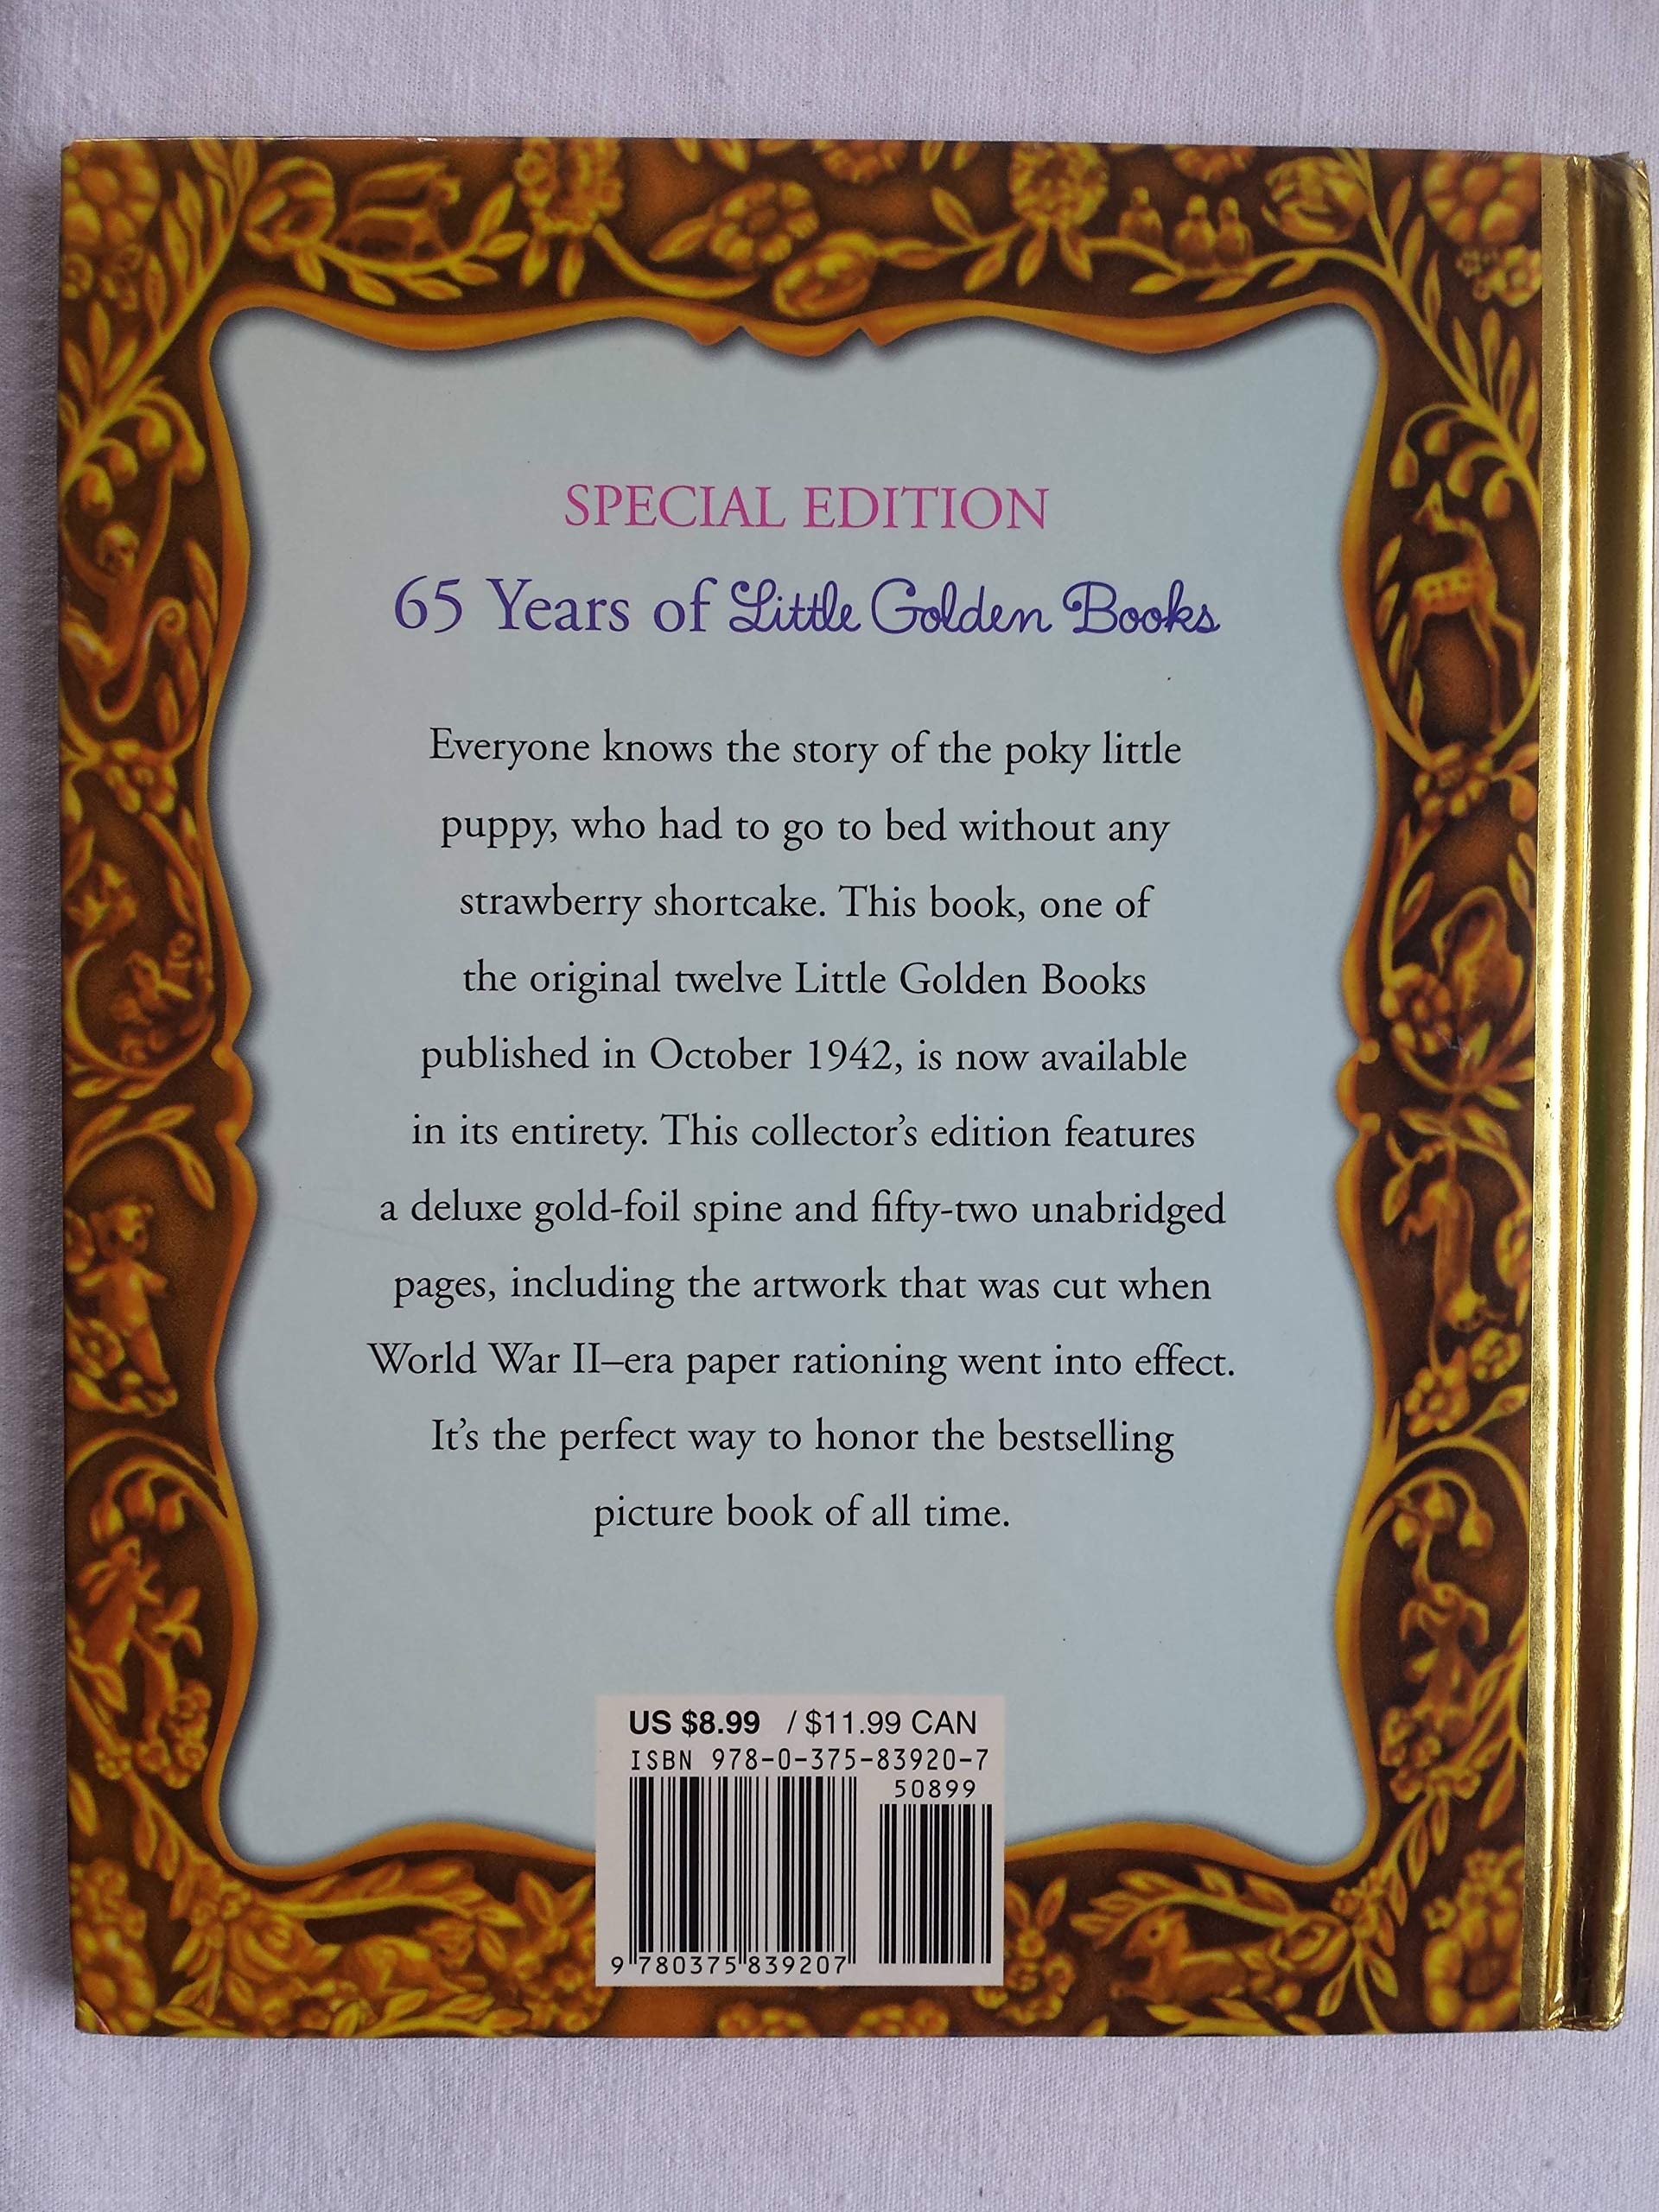 SPECIAL EDITION
65 Years of Little Golden Books
Everyone knows the story of the poky little
puppy, who had to go to bed without any
strawberry shortcake. This book, one of
the original twelve Little Golden Books
published in October 1942, is now available
in its entirety. This collector's edition features
a deluxe gold-foil spine and fifty-two unabridged
pages, including the artwork that was cut when
World War II–era paper rationing went into effect.
It's the perfect way to honor the bestselling
picture book of all time.
US $8.99 / $11.99 CAN
ISBN 978-0-375-83920-7
50899
9 780375 839207